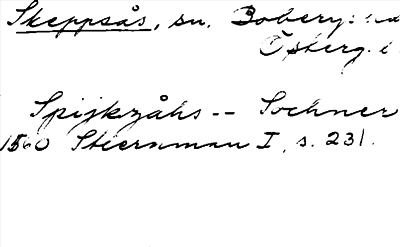 Skeppsås, sn. Bobergs hd
Östberg. l
Spijkzåhs -- Sochner
1560 Stiernman I, s. 231.